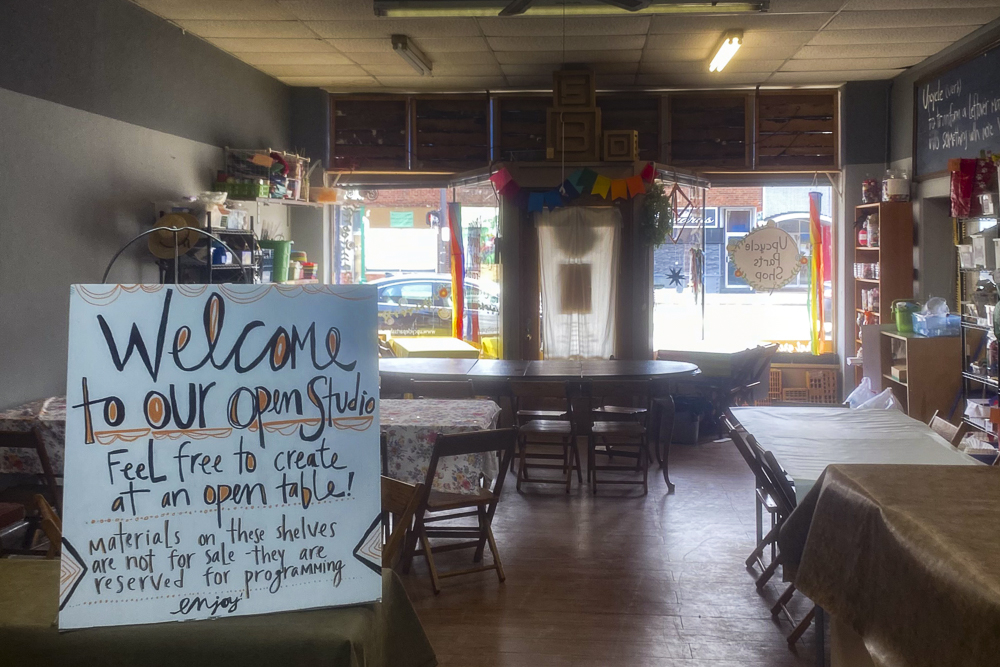 Welcome
to our open Studio
Feel free to create
at an open table!
Materials on these shelves
are not for sale - they are
reserved for programming
enjoy
Upcycle
Parts
Shop
Upcycle (verb)
to transform a leftover
into something with more